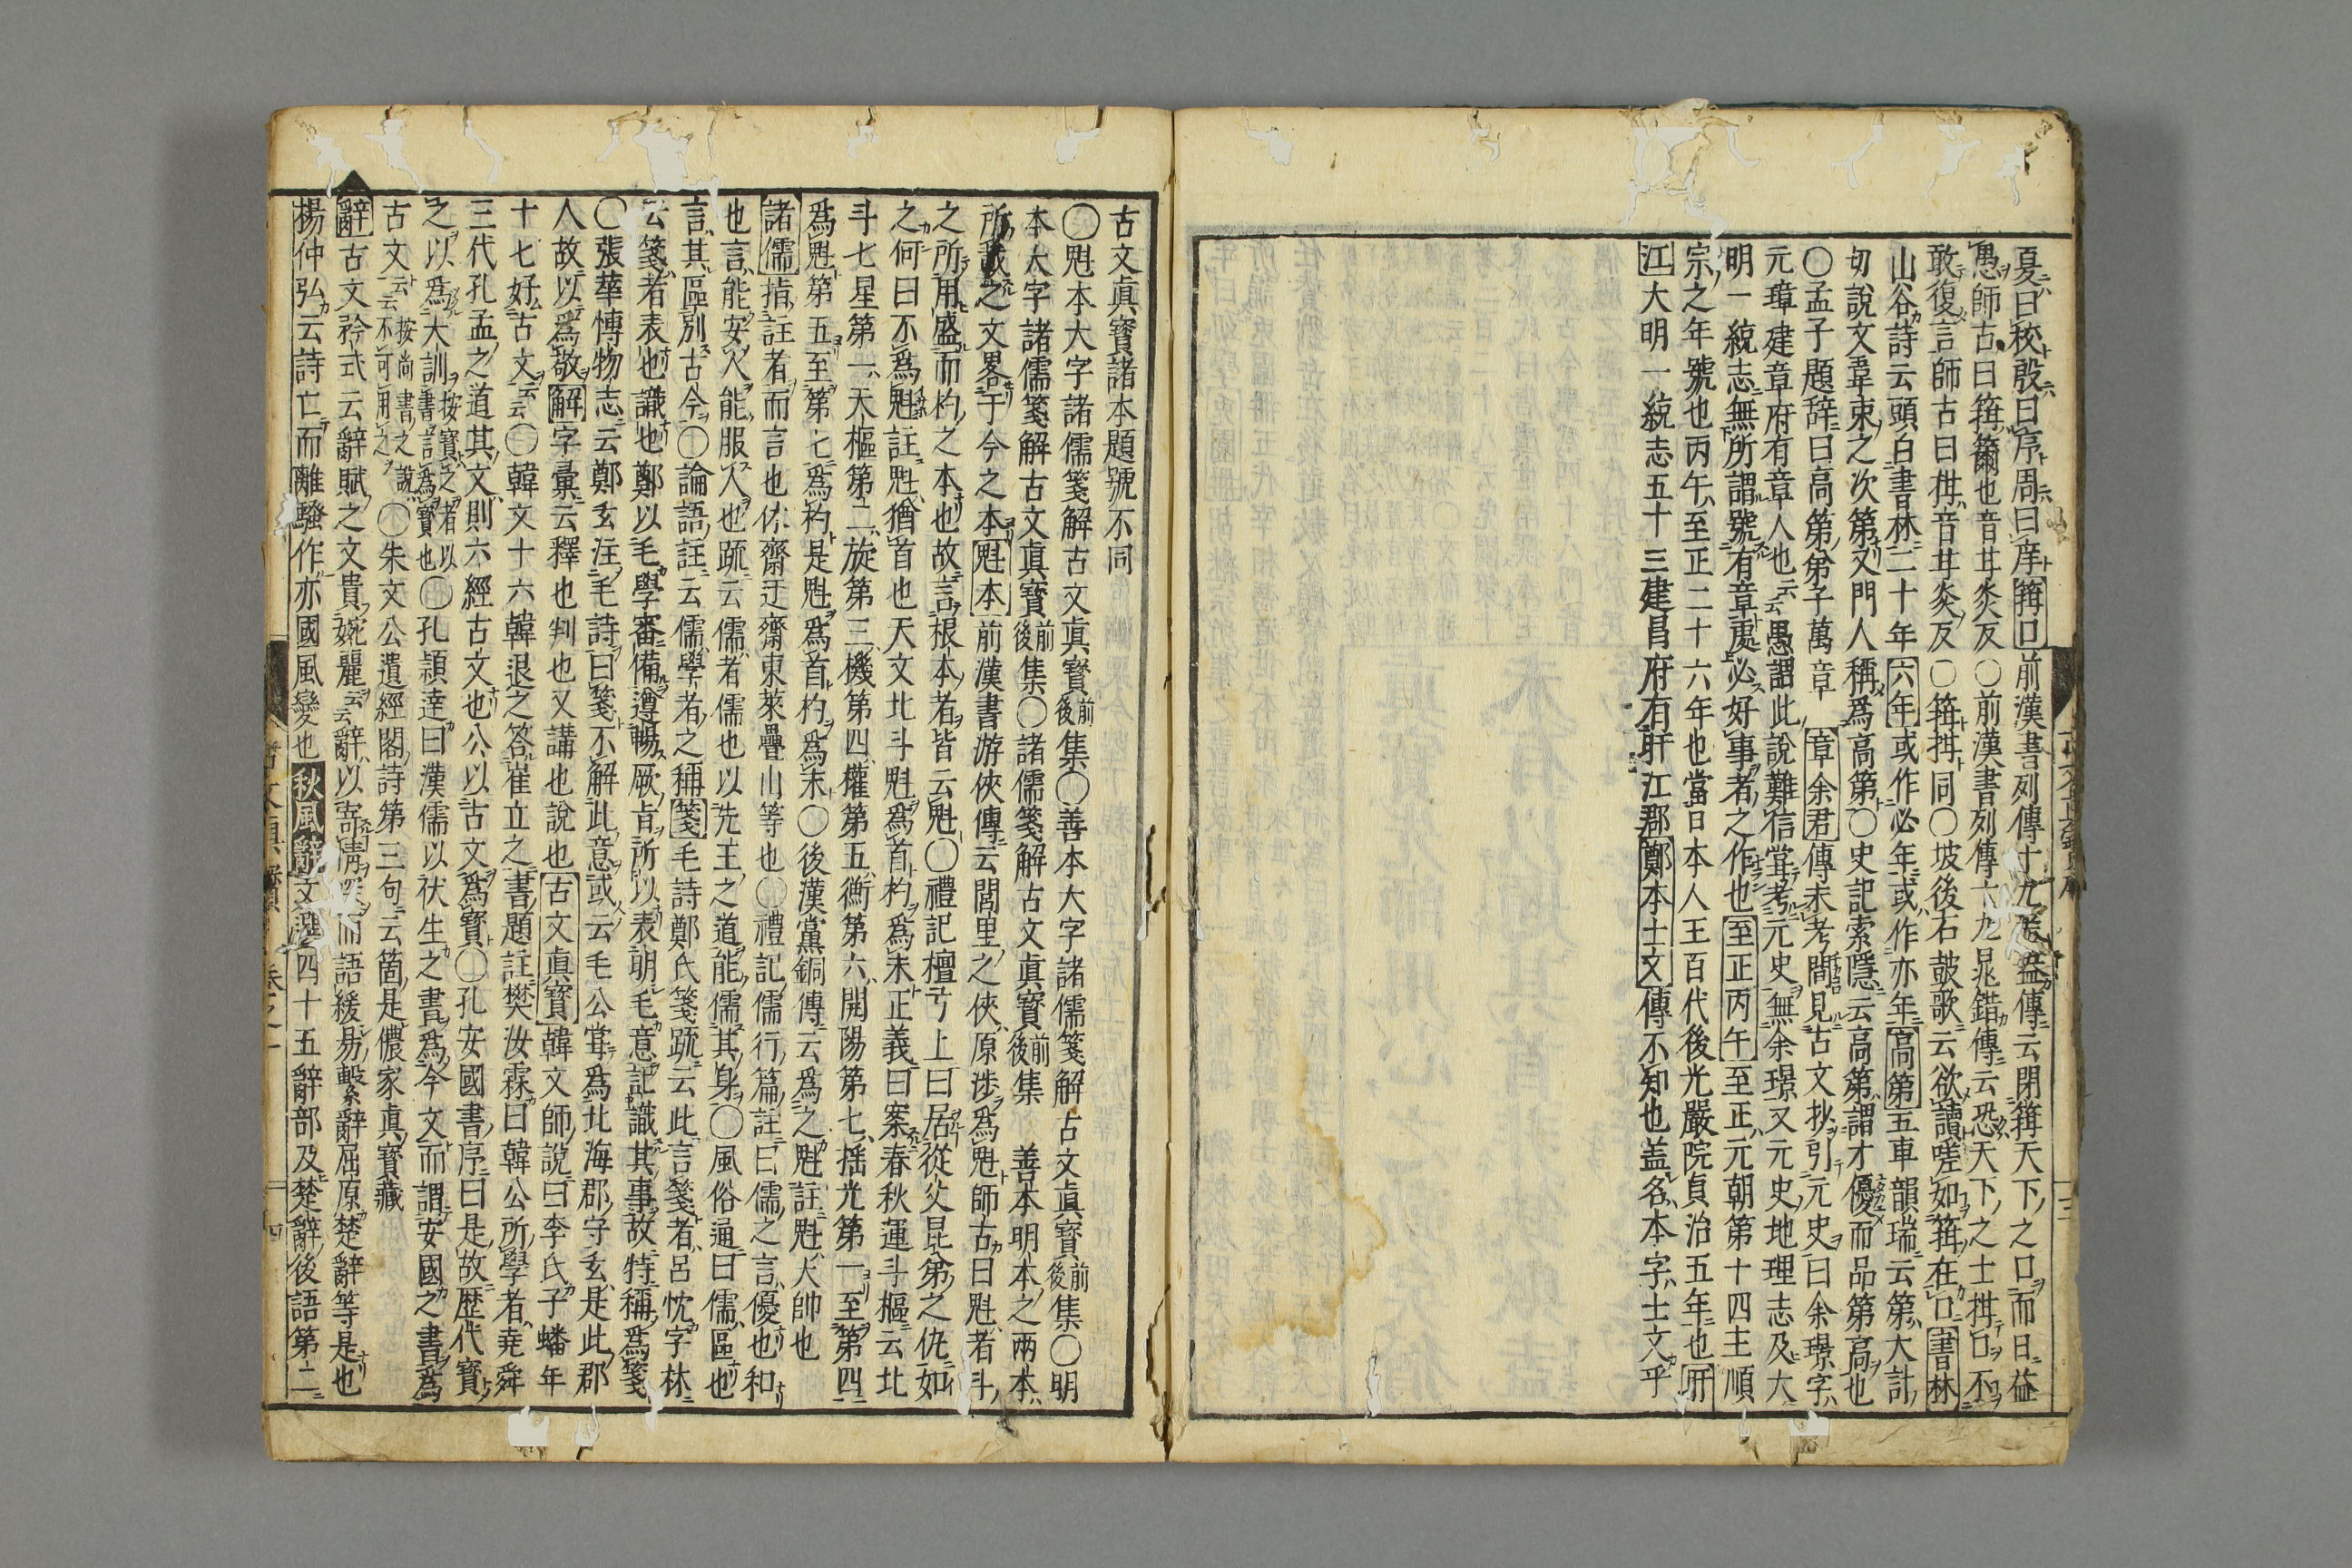 夏曰校殷曰序周曰庠箝口前漢書列傳十九爰盎傳云閉箝天下之口而日益
愚師古曰箝籋也音其炎反○前漢書列傳六九晁錯傳云恐天下之士拑口不
敢復言師古曰拑音其炎反○箝拑同○坡後石皷歌云欲讀嗟如箝在口書林
山谷詩云頭白書林二十年六年或作必年或作亦年高第五車韻瑞云第大計
切說文韋束之次第又門人稱為高第○史記索隱云高第謂才優而品第高也
○孟子題辞曰高第弟子萬章章余君傳未考間見古文抄引元史曰余璟字
元璋建章府有章人也云云愚謂此說難信甞考元史無余璟又元史地理志及大
明一統志無所謂號有章處必好事者之作也至正丙午至正元朝第十四主順
宗之年號也丙午至正二十六年也當日本人王百代後光嚴院貞治五年也盱
江大明一統志五十三建昌府有盱江郡鄭本士文傳不知也盖名本字士文乎
古文真寶諸本題號不同
○魁本大字諸儒箋解古文真寶前後集○善本大字諸儒箋解古文真寶前後集○明
本大字諸儒箋解古文真寶前後集○諸儒箋解古文真寶前後集 善本明本之兩本
所載之文畧于今之本魁本前漢書游俠傳云閭里之俠原涉為魁師古曰魁者斗
之所用盛而杓之本也故言根本者皆云魁○禮記檀弓上曰居從父昆弟之仇如
之何曰不為魁註魁猶首也天文北斗魁為首杓為末正義曰案春秋運斗樞云北
斗七星第一天樞第二旋第三機第四權第五衡第六開陽第七搖光第一至第四
為魁第五至第七為杓是魁為首杓為末○後漢黨錮傳云為之魁註魁大帥也
諸儒指註者而言也休齋迂齋東萊疊山等也○禮記儒行篇註曰儒之言優也和
也言能安人能服人也疏云儒者儒也以先王之道能儒其身○風俗通曰儒區也
言其區別古今○論語註云儒學者之稱箋毛詩鄭氏箋疏云此言箋者呂忱字林
云箋者表也識也鄭以毛學審備遵暢厥旨所以表明毛意記識其事故特稱為箋
○張華愽物志云鄭玄注毛詩曰箋不解此意或云毛公甞為北海郡守玄是此郡
人故以為敬解字彙云釋也判也又講也說也古文真寶韓文師說曰李氏子蟠年
十七好古文云云○韓文十六韓退之答崔立之書題註樊汝霖曰韓公所學者堯舜
三代孔孟之道其文則六經古文也公以古文為寶○孔安國書序曰是故歷代寶
之以為大訓按寶之者以書言為寶也○孔頴達曰漢儒以伏生之書為今文而謂安國之書為
古文云云按尚書之說不可用之○朱文公遺經閣詩第三句云箇是儂家真寶藏
辭古文矜式云辭賦之文貴婉麗云云辭以寄情深而語緩易繫辭屈原楚辭等是也
揚仲弘云詩亡而離騷作亦國風變也秋風辭文選四十五辭部及楚辭後語第二